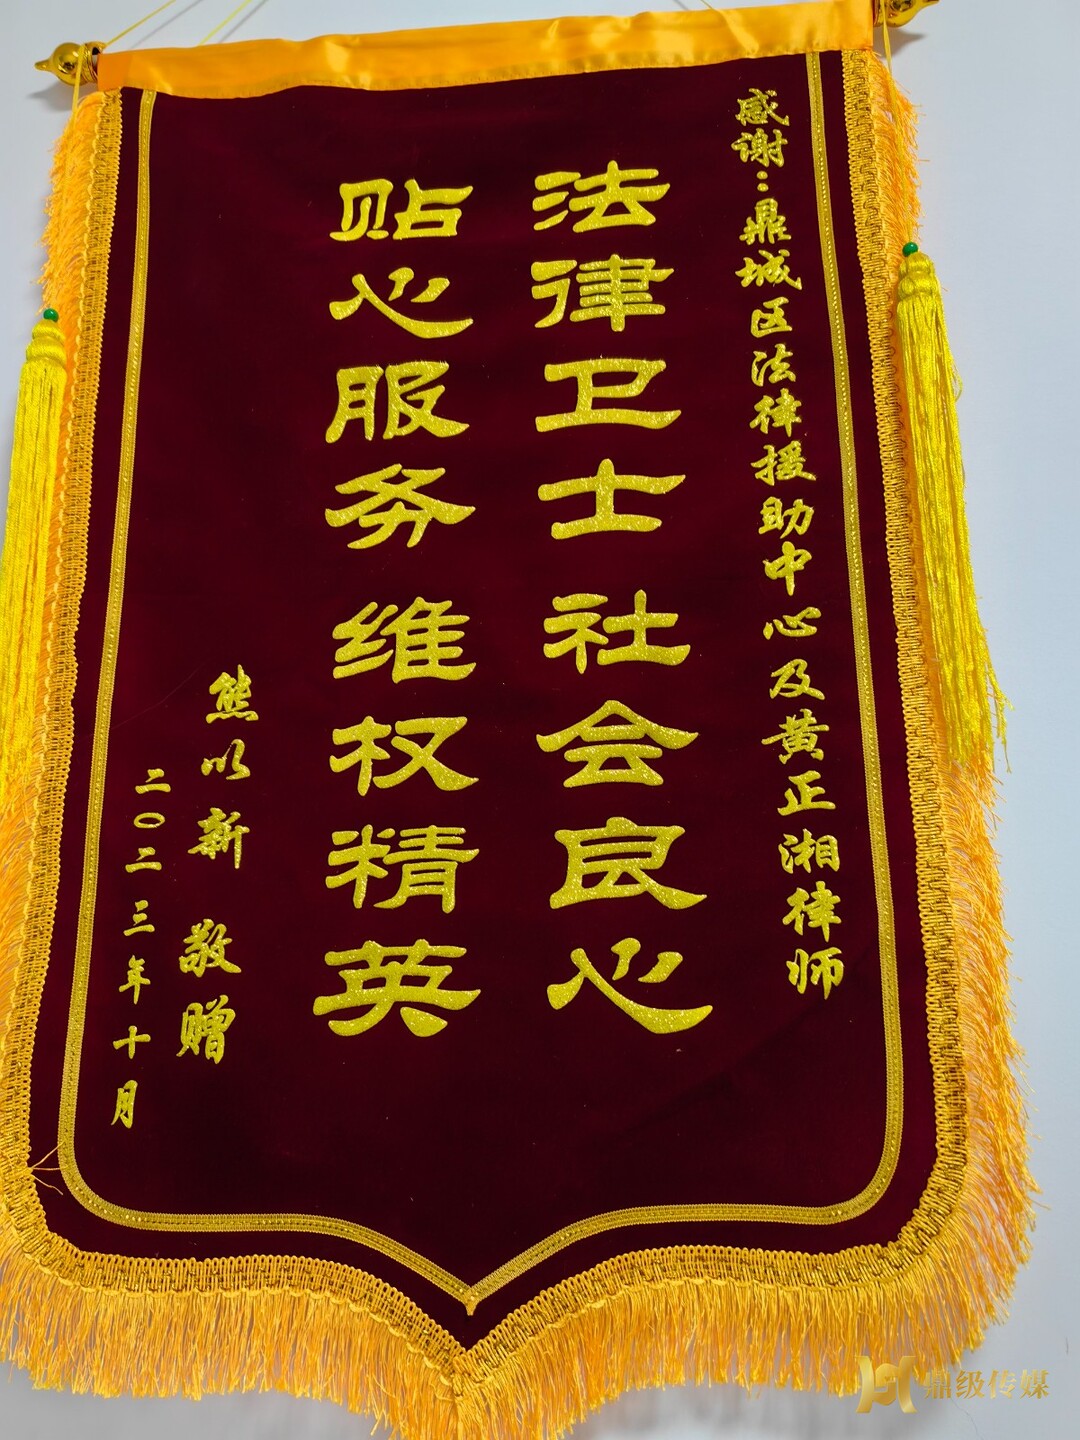 感谢:鼎城区法律援助中心及黄正湘律师
法律卫士 社会良心
贴心服务 维权精英
熊以新 敬赠
二〇二三年十月
鼎级传媒